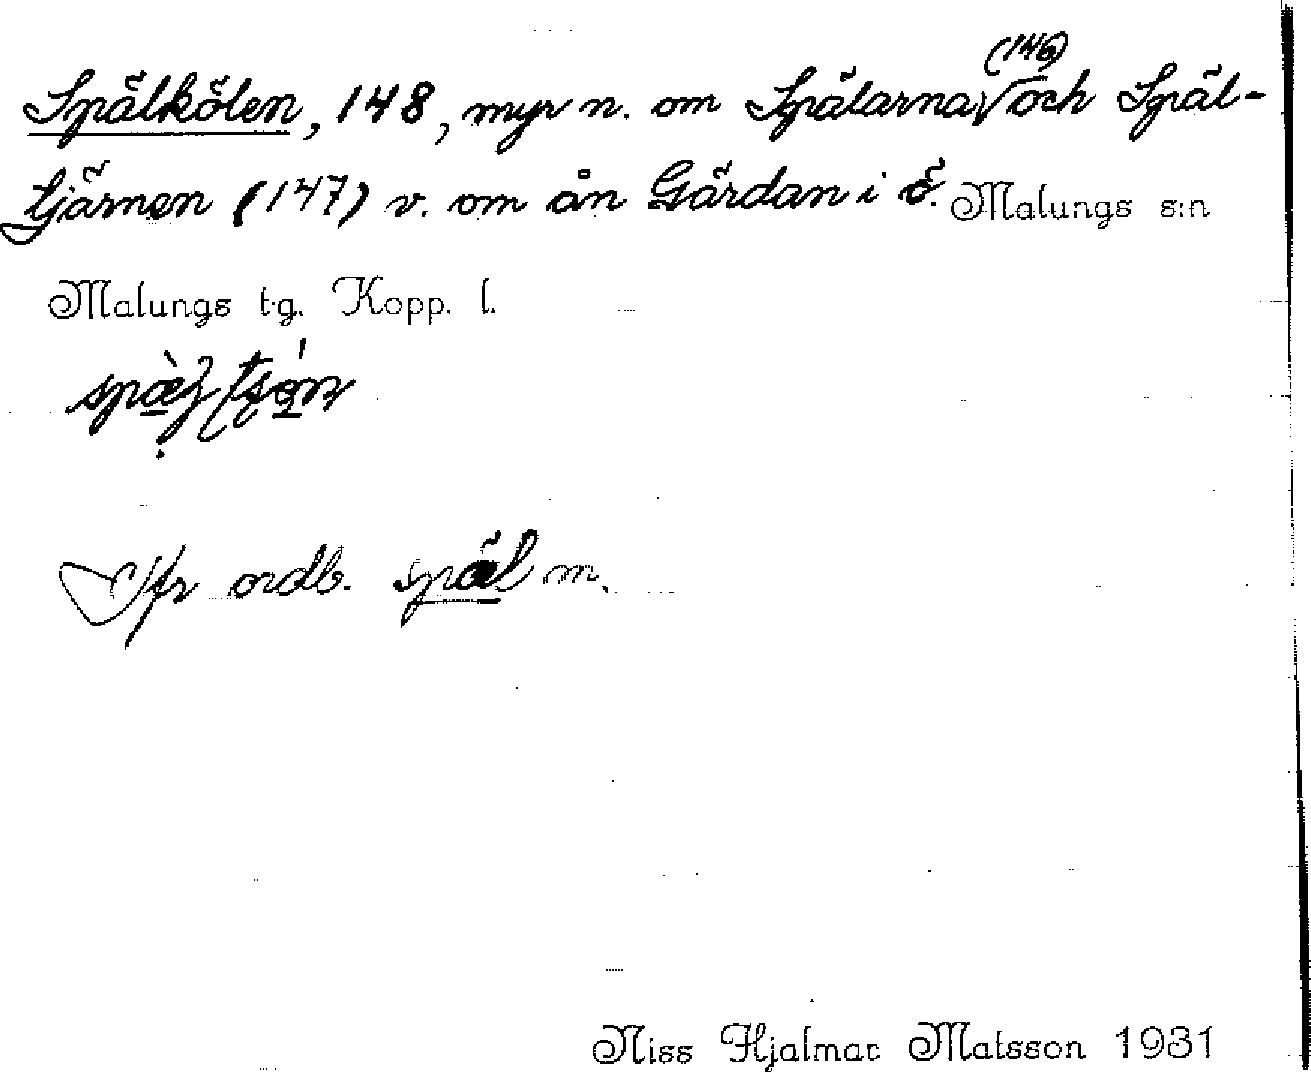 Spälkölen, 148, myr n. om Spälarna (146) och Späl-
tjärnen (147) v. om ån Gärdan i ö. Malungs s:n
Malungs tg. Kopp. l.
Jfr ordb. späl m.
Niss Hjalmar Matsson 1931